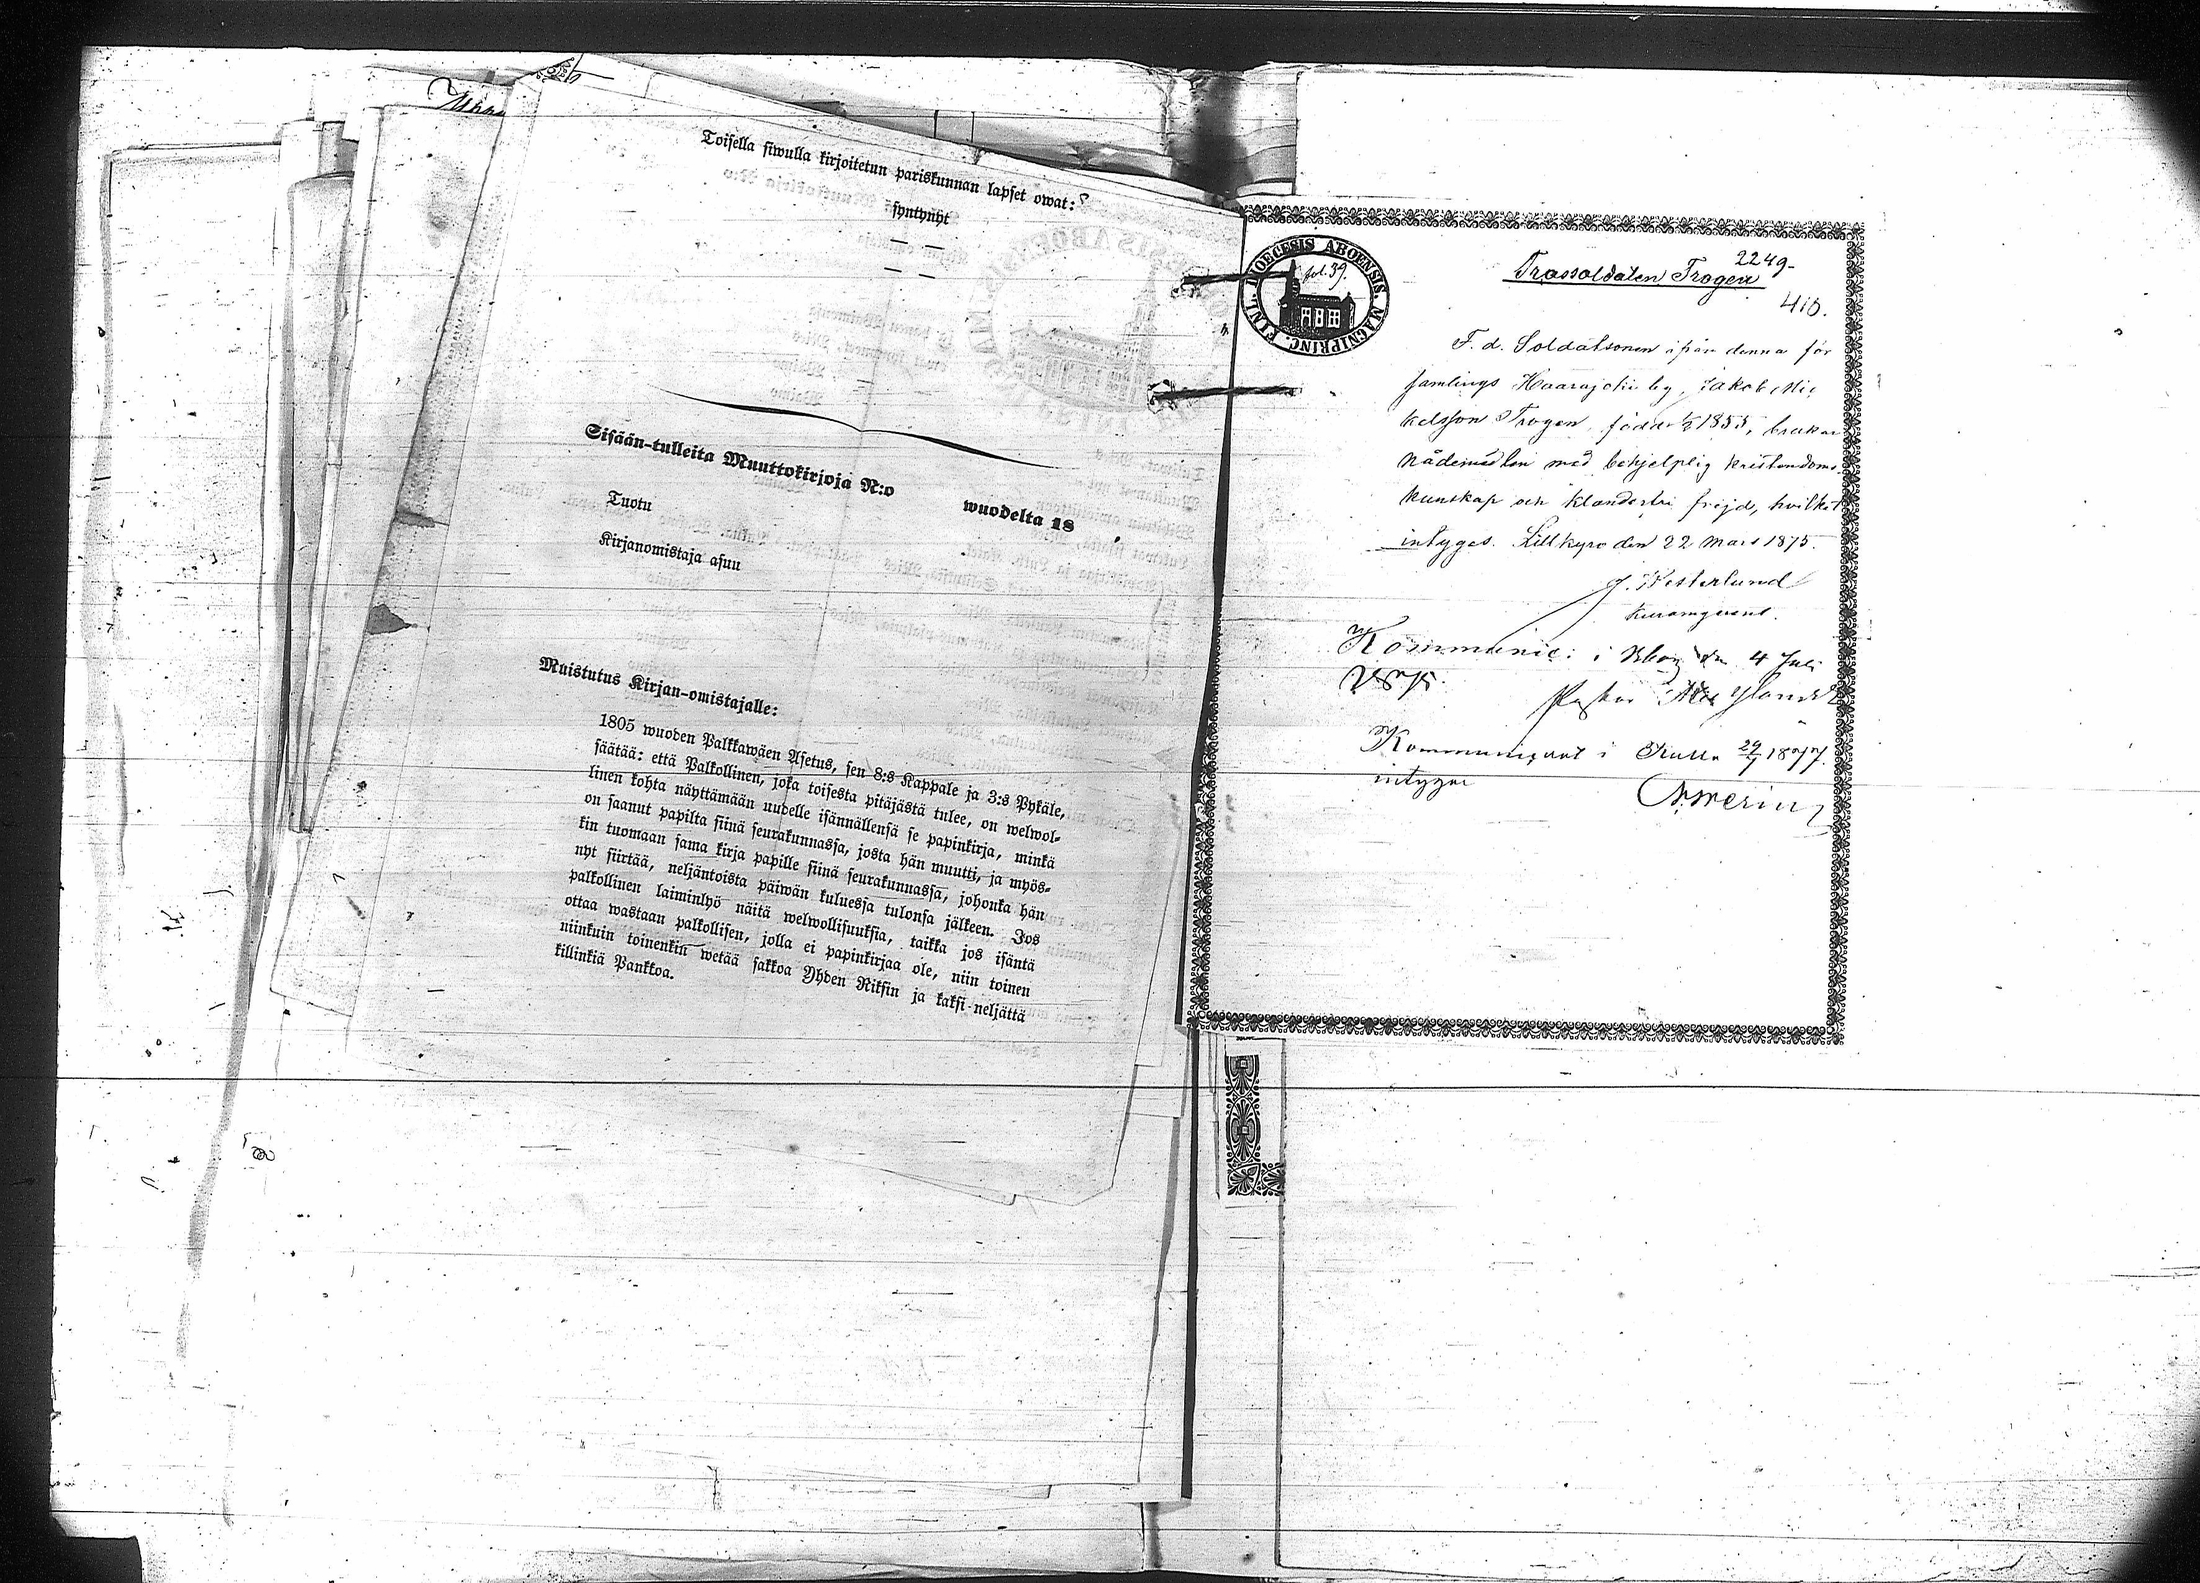 Toisella siwulla kirjoitetun pariskunnan lapset owat:
syntynyt
— —
— —
Sisään-tulleita Muuttokirjoja N:o wuodelta 18
Tuotu
Kirjanomistaja asuu
Muistutus Kirjan-omistajalle:
1805 wuoden Palkkawäen Asetus, sen 8:s Kappale ja 3:s Pykäle,
säätää: että Palkollinen, joka toisesta pitäjästä tulee, on welwol-
linen kohta näyttämään uudelle isännällensä se papinkirja, minkä
on saanut papilta siinä seurakunnassa, josta hän muutti, ja myös-
kin tuomaan sama kirja papille siinä seurakunnassa, johonka hän
nyt siirtää, neljäntoista päiwän kuluessa tulonsa jälkeen. Jos
palkollinen laiminlyö näitä welwollisuuksia, taikka jos isäntä
ottaa wastaan palkollisen, jolla ei papinkirjaa ole, niin toinen
niinkuin toinenkin wetää sakkoa Yhden Riksin ja kaksi neljättä
killinkiä Pankkoa.
FINL. DIOECESIS ABOENSIS. MAGNIPRINC.
fol. 39
2249-
Trossoldaten Trogen
410.
F. d. Soldatsonen ifrån denna för
samlings Haarajoki by, Jakob Mic
kelsson Trogen, född 1855, brukar
nådemedlen med behjelplig kristendoms-
kunskap och klanderfri frejd, hvilket
intygas. Lillkyro den 22 Mars 1875.
J. Westerlund
Kommunic: i den 4 Juli
1875.
Kommunicerat i 29/7 1877.
intygar